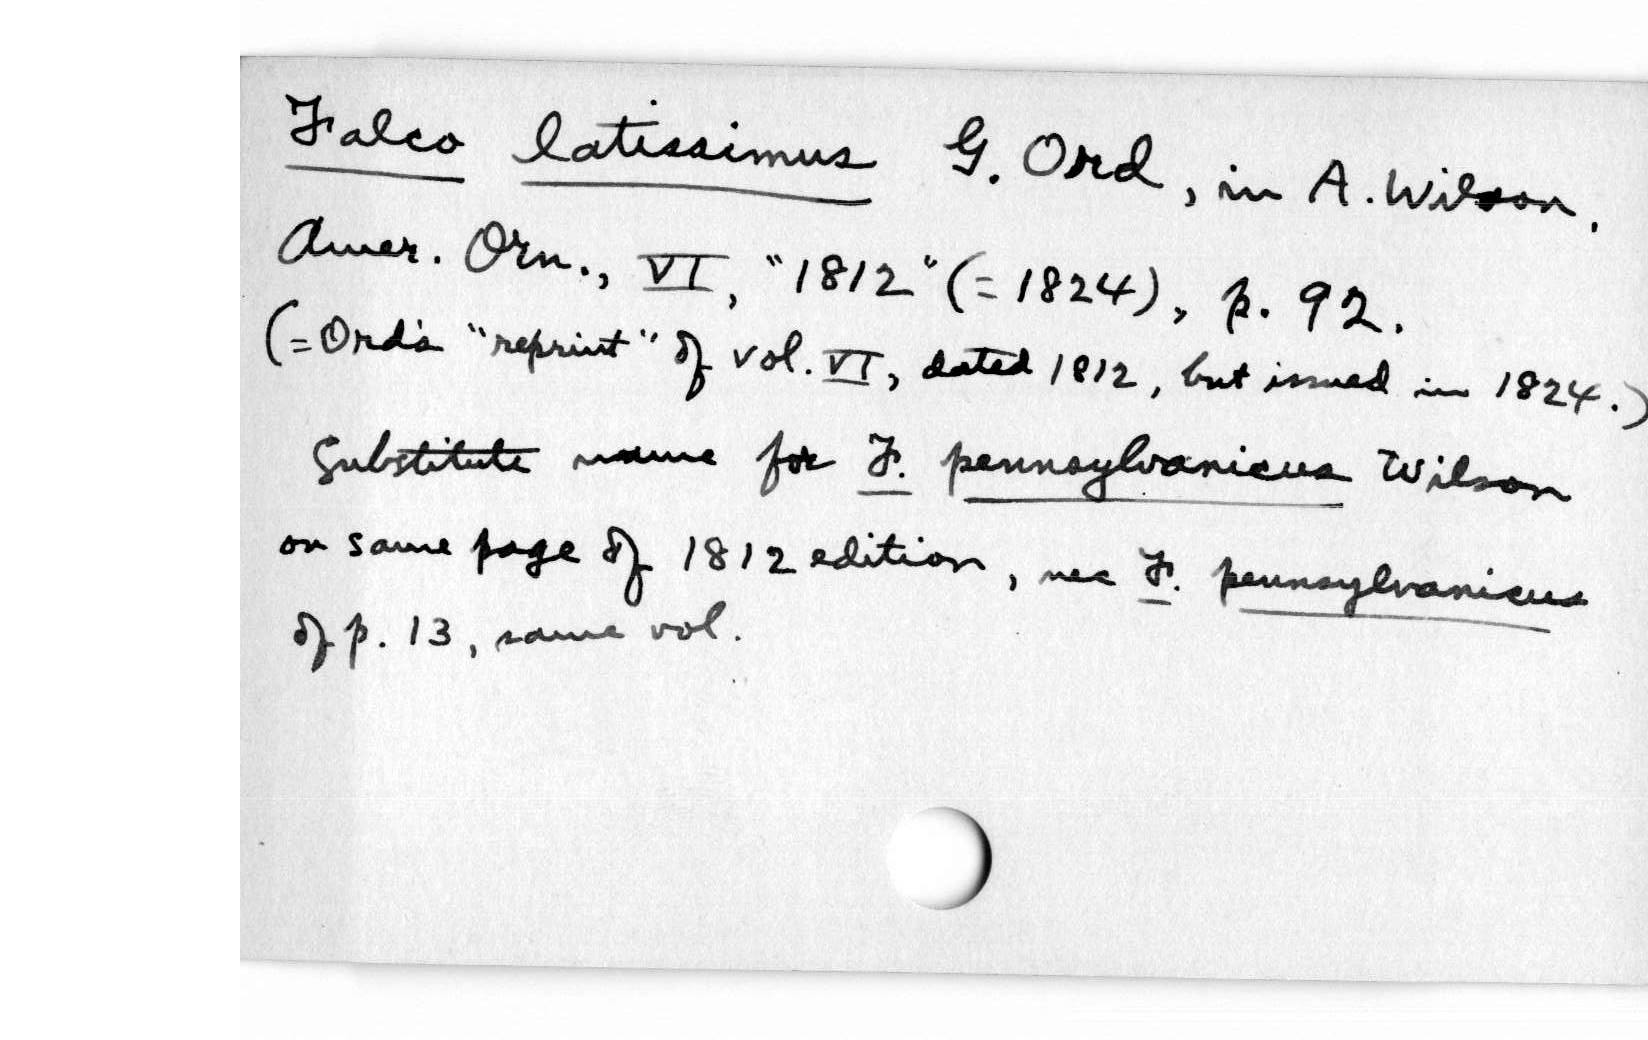 Falco latissimus G. Ord, in A. Wilson,
Amer. Orn., VI, "1812" (= 1824), p. 92.
(= Ord's "reprint" of vol. VI, dated 1812, but issued in 1824.)
Substitute name for F. pennsylvanicus Wilson
on same page of 1812 edition, nec F. pennsylvanicus
of p. 13, same vol.